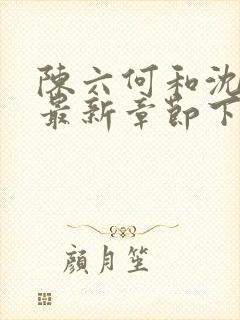 陳六何和沈
最新章節下
顏月笙